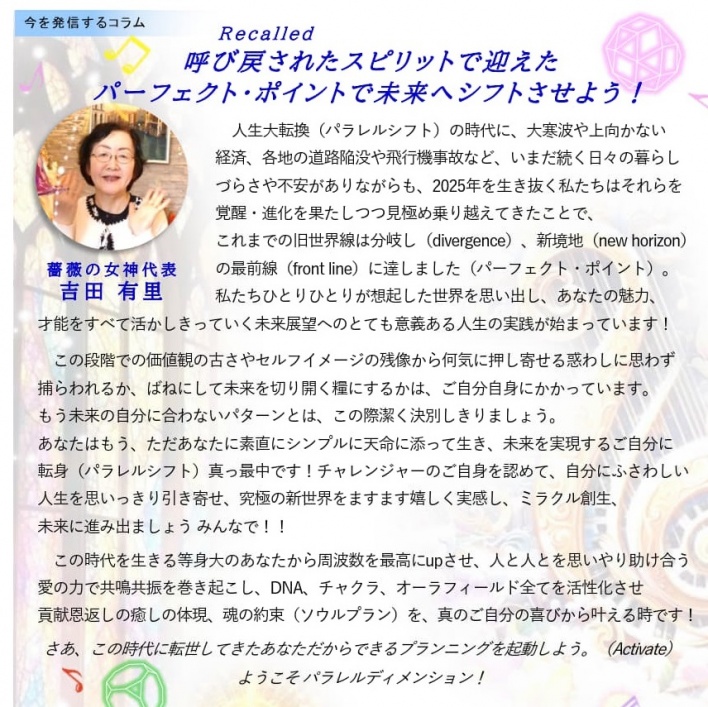 今を発信するコラム
Recalled
呼び戻されたスピリットで迎えた
パーフェクト・ポイントで未来へシフトさせよう！
薔薇の女神代表
吉田 有里
人生大転換（パラレルシフト）の時代に、大寒波や上向かない
経済、各地の道路陥没や飛行機事故など、いまだ続く日々の暮らし
づらさや不安がありながらも、2025年を生き抜く私たちはそれらを
覚醒・進化を果たしつつ見極め乗り越えてきたことで、
これまでの旧世界線は分岐し（divergence）、新境地（new horizon）
の最前線（front line）に達しました（パーフェクト・ポイント）。
私たちひとりひとりが想起した世界を思い出し、あなたの魅力、
才能をすべて活かしきっていく未来展望へのとても意義ある人生の実践が始まっています！
この段階での価値観の古さやセルフイメージの残像から何気に押し寄せる惑わしに思わず
捕らわれるか、ばねにして未来を切り開く糧にするかは、ご自分自身にかかっています。
もう未来の自分に合わないパターンとは、この際潔く決別しきりましょう。
あなたはもう、ただあなたに素直にシンプルに天命に添って生き、未来を実現するご自分に
転身（パラレルシフト）真っ最中です！チャレンジャーのご自身を認めて、自分にふさわしい
人生を思いっきり引き寄せ、究極の新世界をますます嬉しく実感し、ミラクル創生、
未来に進み出ましょう みんなで！！
この時代を生きる等身大のあなたから周波数を最高にupさせ、人と人とを思いやり助け合う
愛の力で共鳴共振を巻き起こし、DNA、チャクラ、オーラフィールド全てを活性化させ
貢献恩返しの癒しの体現、魂の約束（ソウルプラン）を、真のご自分の喜びから叶える時です！
さあ、この時代に転世してきたあなただからできるプランニングを起動しよう。（Activate）
ようこそ パラレルディメンション！